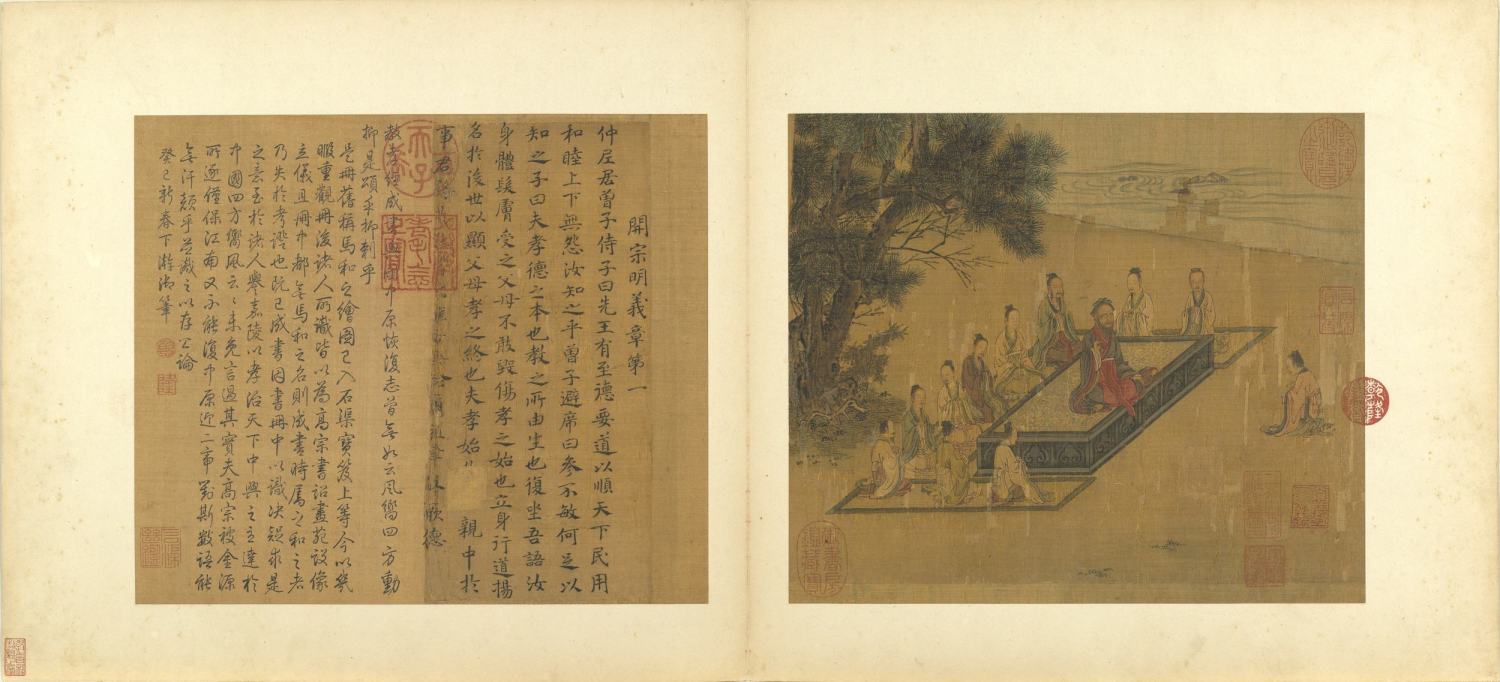 開宗明義章第一
仲尼居曾子侍子曰先王有至德要道以順天下民用
和睦上下無怨汝知之乎曾子避席曰參不敏何足以
知之子曰夫孝德之本也教之所由生也復坐吾語汝
身體髮膚受之父母不敢毀傷孝之始也立身行道揚
名於後世以顯父母孝之終也夫孝始 親中於
事君 厥德
教孝經成書畫圖中原恢復志曾無如云風嚮四方動
抑是頌乎抑刺乎
是冊舊稱馬和之繪圖已入石渠寶笈上等今以幾
暇重觀冊後諸人所識皆以為高宗書詔畫苑設像
立儀且冊中都無馬和之名則成書時屬之和之者
乃失於考證也既已成書因書冊中以識決疑求是
之意至於諸人譽嘉陵以孝治天下中興之主達於
中國四方嚮風云云未免言過其實夫高宗被金源
所逐僅保江南又不能復中原近二帝對斯數語能
無汗顏乎並識之以存公論
癸巳新春下澣御筆